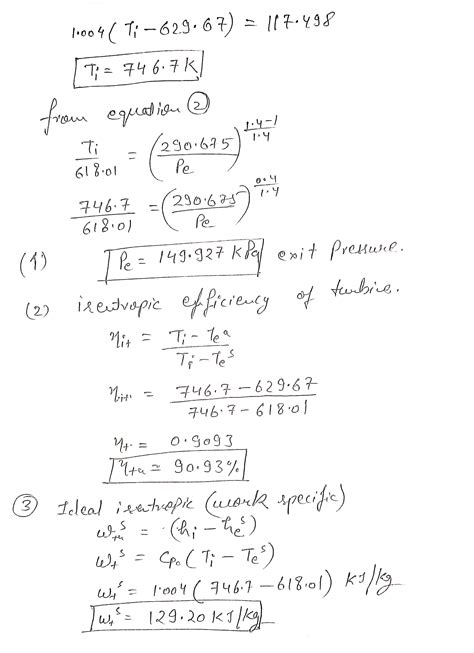 1.004 ( Ti - 629.67 ) = 117.498
Ti = 746.7 K
from equation ②
Ti / 618.01 = ( 290.675 / Pe )^(1.4-1 / 1.4)
746.7 / 618.01 = ( 290.675 / Pe )^(0.4 / 1.4)
(1) Pe = 149.927 kPa exit Pressure.
(2) isentropic efficiency of turbine.
ηit = Ti - Te^a / Ti - Te^s
ηit = 746.7 - 629.67 / 746.7 - 618.01
ηt = 0.9093
= 90.93%
③ Ideal isentropic (work specific)
= (hi - he^s)
wt^s = Cpo ( Ti - Te^s )
wt^s = 1.004 ( 746.7 - 618.01 ) KJ/kg
wt^s = 129.20 KJ/kg